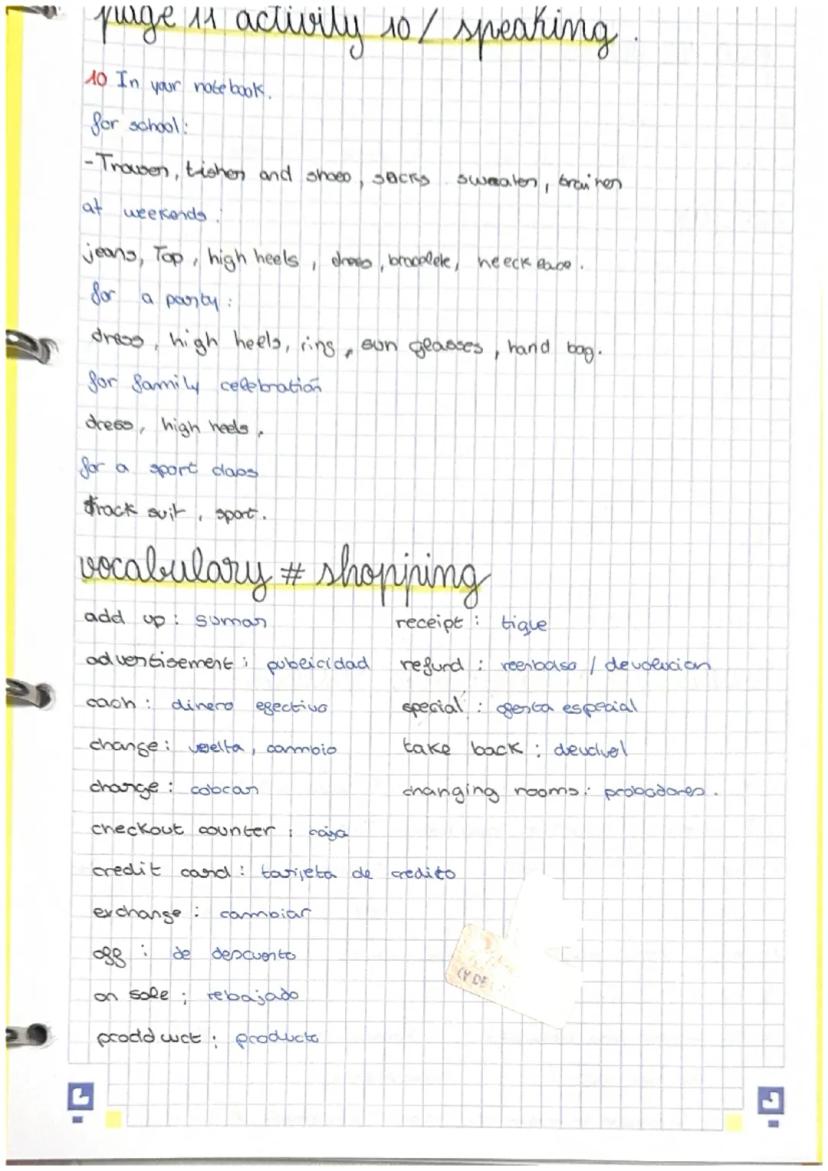 page 11 activity 10/ speaking.
10 In your notebook.
for school:
- Trouser, tisher and shoes, socks sweater, trainer
at weekends:
jeans, Top, high heels, dress, bracelete, neecklace.
for a party:
dress, high heels, ring, sun glasses, hand bag.
for family celebration
dress, high heels,
for a sport class
track suit, sport.
vocabulary # shopping
add up: sumar
advertisement: publicidad
cash: dinero efectivo
change: vuelta, cambio
charge: cobrar
checkout counter: caja
credit card: tarjeta de credito
exchange: cambiar
off: de descuento
on sale; rebajado
prodduct: producto
receipt: tique
refurd: reenbolso / devolucion
special: oferta especial
take back: devolvel
changing rooms: probadores.
(Y DE